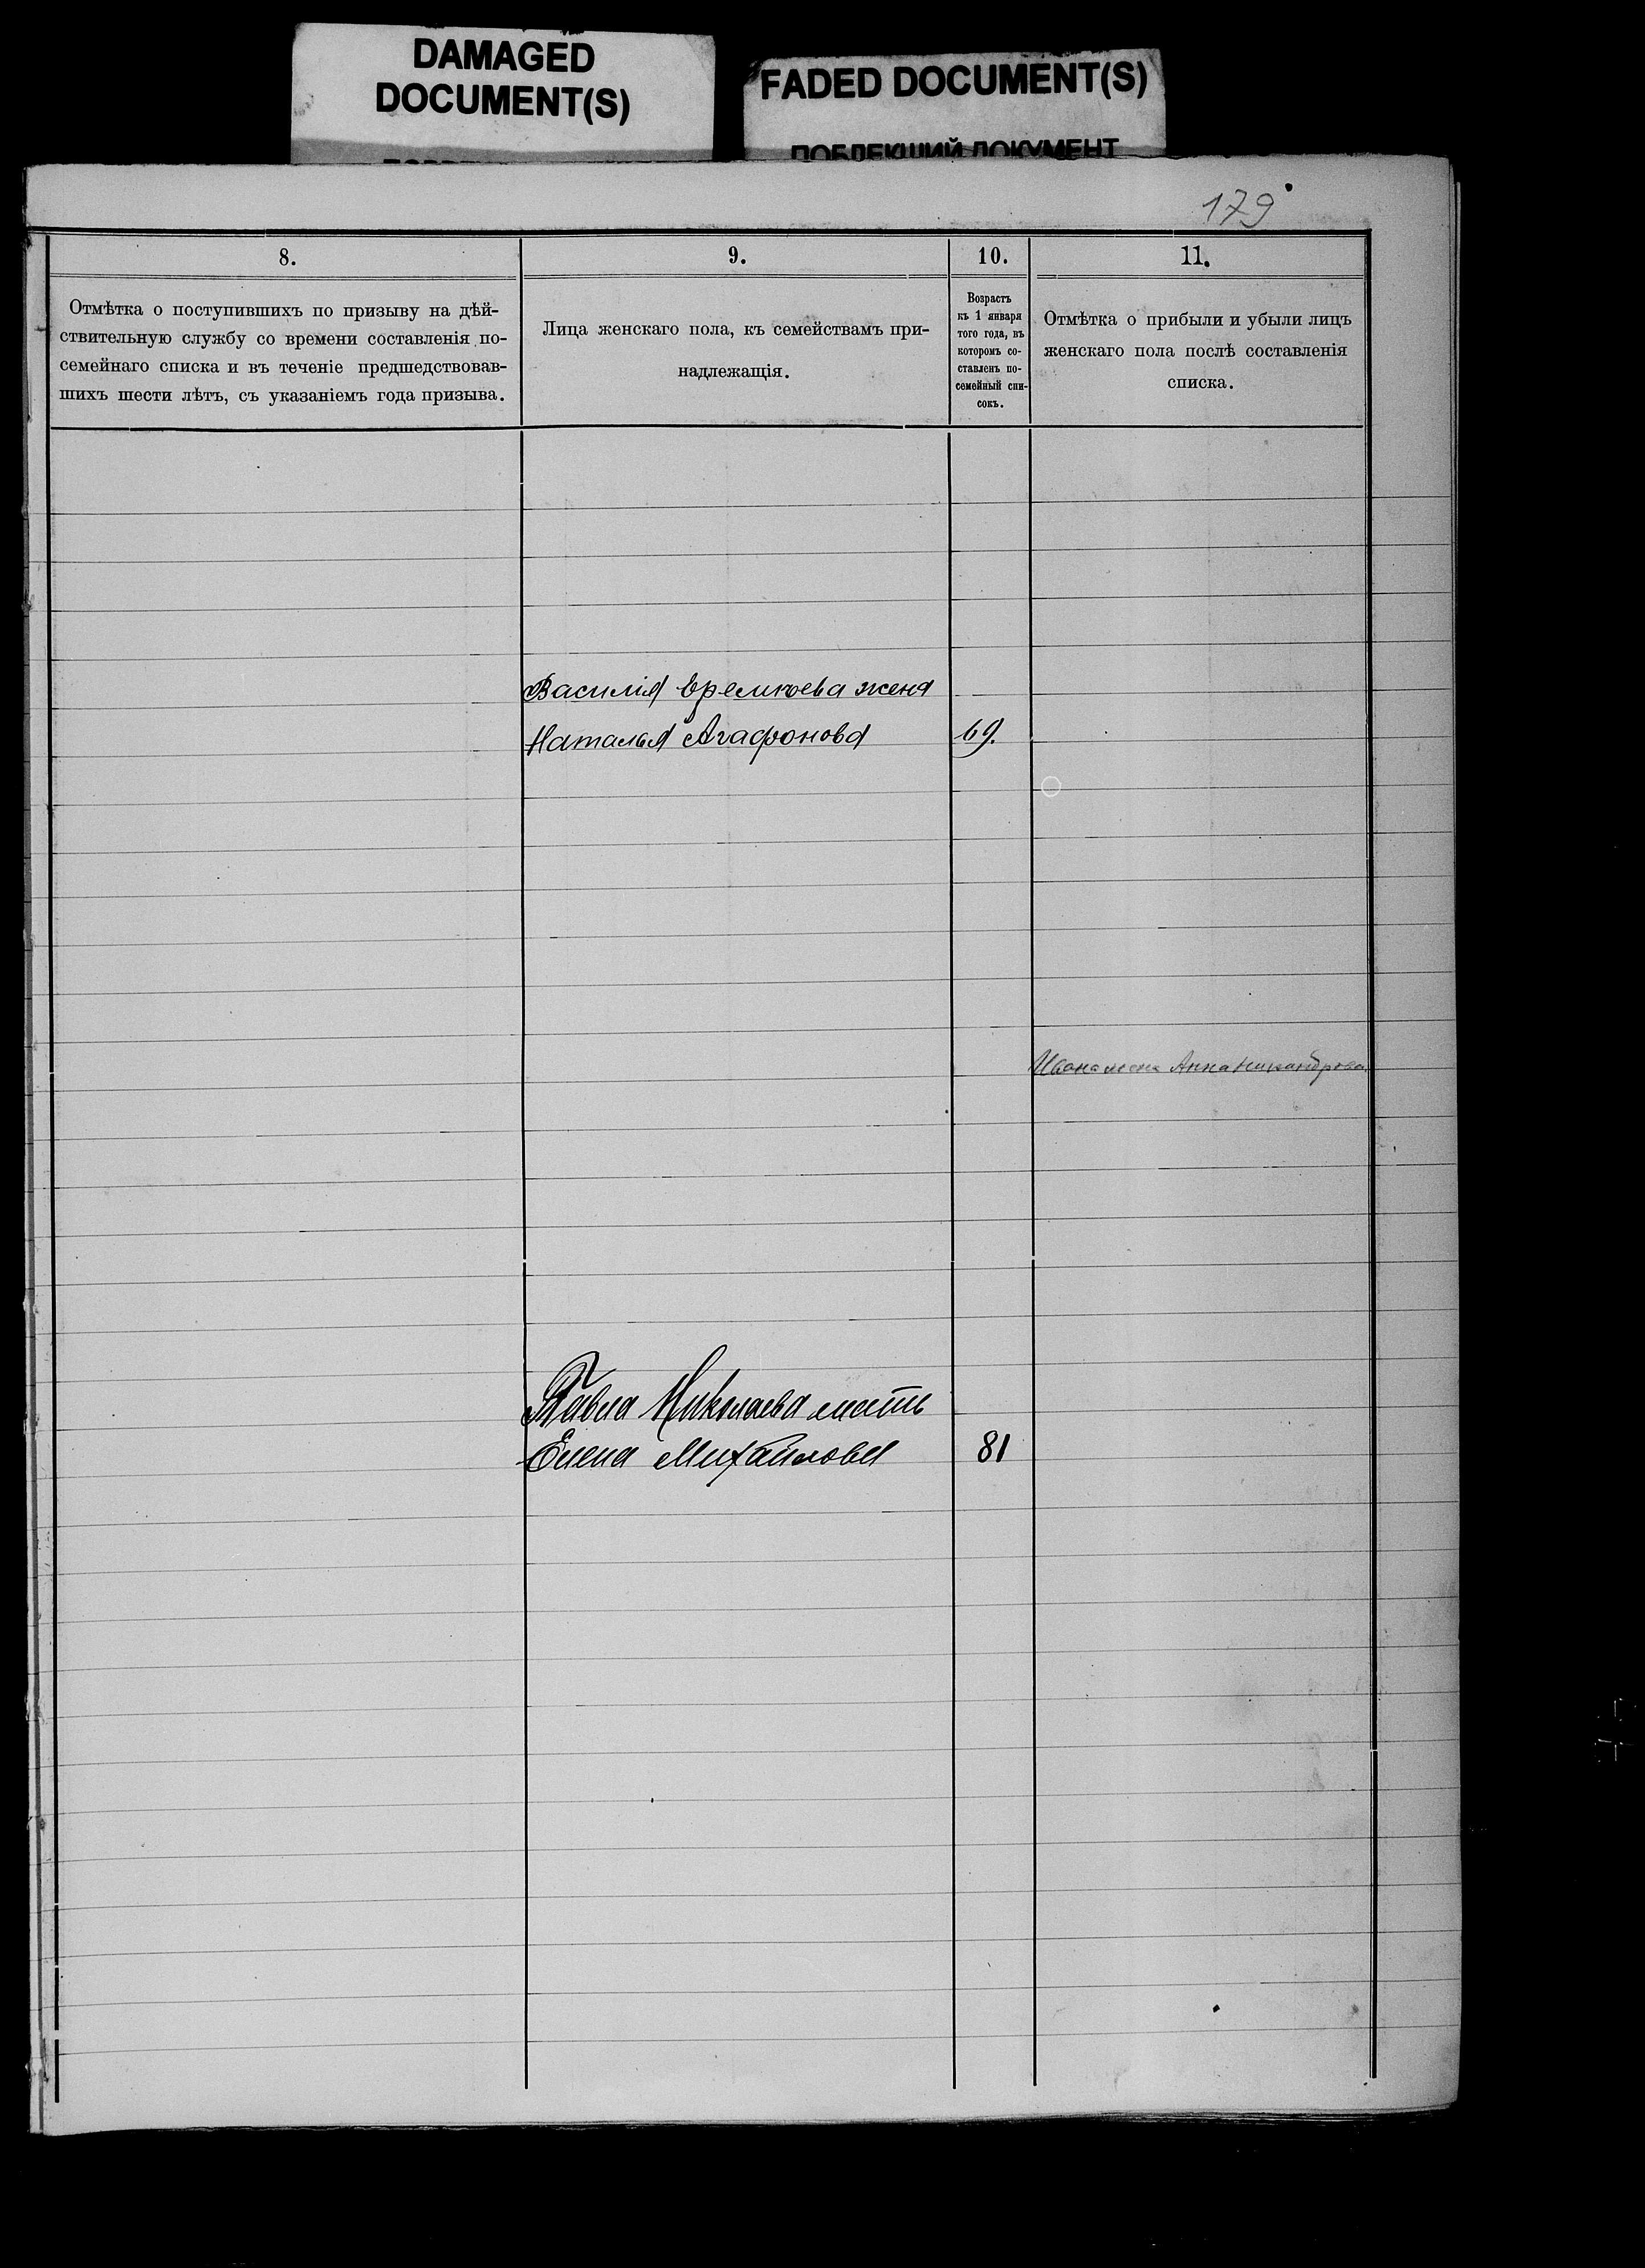 DAMAGED
DOCUMENT(S)
FADED DOCUMENT(S)
ПОБЛЕКШИЙ ДОКУМЕНТ
179
8.
Отмѣтка о поступившихъ по призыву на дѣй-
ствительную службу со времени составленія по-
семейнаго списка и въ теченіе предшедствовав-
шихъ шести лѣтъ, съ указаніемъ года призыва.
9.
Лица женскаго пола, къ семействамъ при-
надлежащія.
10.
Возрастъ
къ 1 января
того года, въ
которомъ со-
ставленъ по-
семейный спи-
сокъ.
11.
Отмѣтка о прибыли и убыли лицъ
женскаго пола послѣ составленія
списка.
Василія жена
Наталья Агафонова 69.
Ивана жена Анна Никандрова
Павла Николаева мать
Елена Михайлова 81